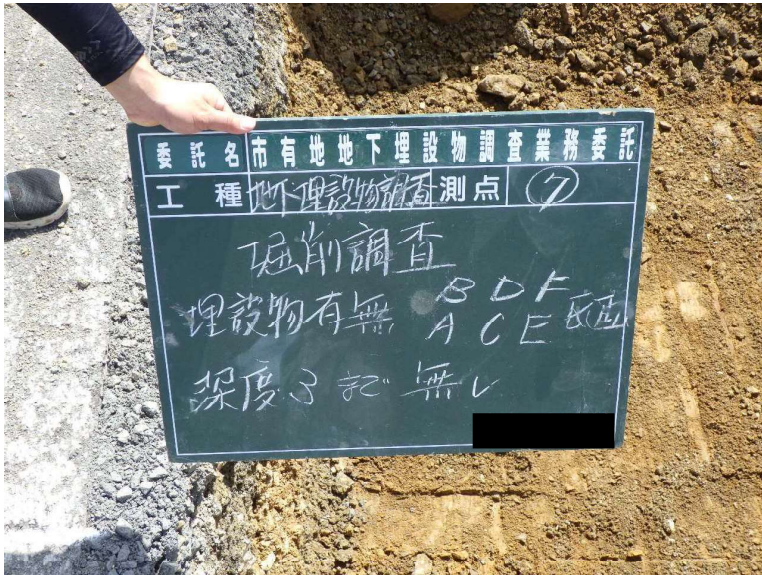 委託名 市有地地下埋設物調査業務委託
工種 地下埋設物調査 測点 ⑦
掘削調査
B D F
埋設物有無 A C E
深度3まで無し